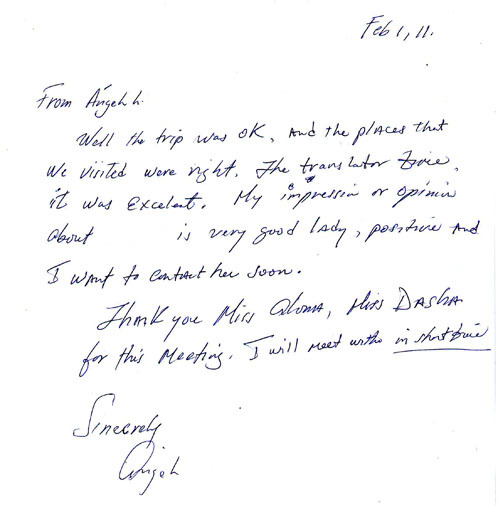 Feb 1, 11.
From Ángel h.
Well the trip was OK, And the places that
We visited were right. The translator
it was Excelent. My impression or opinion
about is very good lady, positive And
I want to contact her soon.
Thank you Miss Miss DASHA
for this Meeting. I will meet in short time
Sincerely
Angel